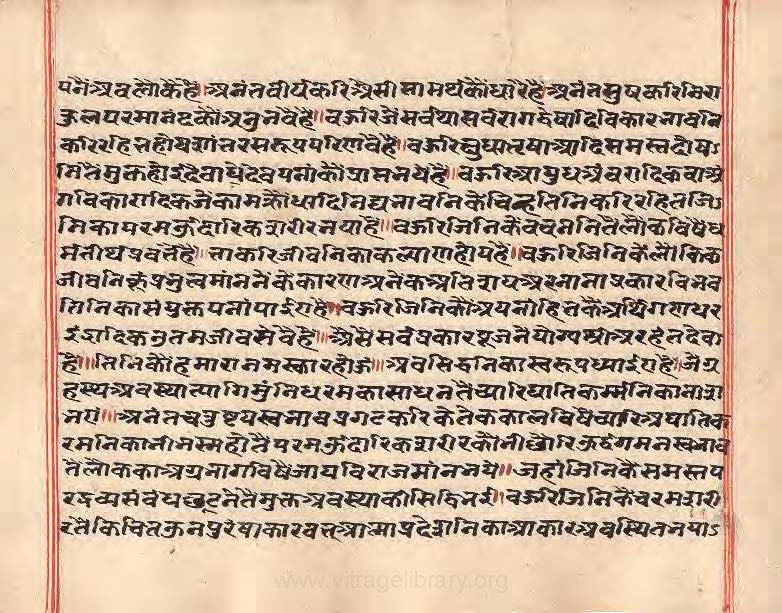 पनैं अवलोकै है।। अनंतवीर्यकरि ऐसी सामर्थ्यकौं धारै है। अनंतसुषकरि निरा
कुल परमानंदकौं अनुभवै है।। बहुरि जे सर्वथा सर्व रागद्वेषादि विकारभावनि
करि रहित होय शांतरसरूप परिणवै है।। बहुरि क्षुधातृषा आदि समस्त दोषऽ
नितैं मुक्त होइ देवाधिदेवपनांकौं प्राप्त भये हैं।। बहुरि आयुध अंबरादिक वा अं
गविकारादिक जे कामक्रोधादि निंद्य भावनिके चिन्ह तिनिकरि रहित जिऽ
निका परमऊदारिक शरीर भया है।। बहुरि जिनिके वचननितैं लोकविषै ध
र्मतीर्थ प्रवर्त्तै है।। ताकरि जीवनिका कल्याण हो य है।। बहुरि जिनिकै लौकिक
जीवनिकूं प्रभुत्व मांननैंके कारण अनेक अतिशय अर नाना प्रकार विभव
तिनिका संयुक्तपनां पाईए है।। बहुरि जिनिकौं अपनां हितके अर्थि गणधर
इंद्रादिक उत्तम जीव सेवै है।। ऐसे सर्वप्रकार पूजने योग्य श्री अरहंतदेव
है।। तिनिकौं हमारा नमस्कार होउ।। अब सिद्धनिका स्वरूप ध्याईए है।। जे गृ
हस्थ अवस्था त्यागि मुनिधर्म का साधनतैं च्यारि घातिकर्म्मनिका नाश
भए।। अनंतचतुष्टय स्वभाव प्रगटकरि केतैक काल विषै च्यारि अघातिक
रमनिका भी भस्म होतैं परमऊदारिक शरीरकौं भी छोरि ऊर्द्धगमन स्वभाव
तैं लोकका अग्रभागविषै जाय विराजमांन भये।। जहां जिनिकै समस्त प
रद्रव्यसंबंध छूटनेतैं मुक्त अवस्थाकी सिद्धि भई।। बहुरि जिनिकै चरम शरी
रतैं किंचित ऊन पुरुषाकारवत् आत्मप्रदेशनिका आकार अवस्थित भयाऽ
www.vitragelibrary.org